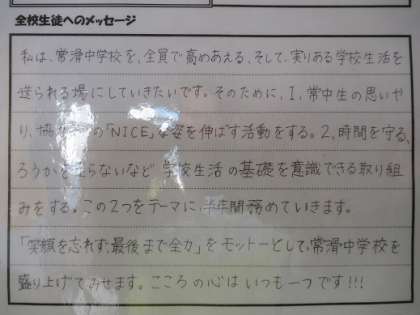 全校生徒へのメッセージ
私は、常滑中学校を、全員で高めあえる、そして、実りある学校生活を
送られる場にしていきたいです。そのために、1、常中生の思いや
り、協の「NICE」な姿を伸ばす活動をする。2、時間を守る、
ろうかを走らないなど学校生活の基礎を意識できる取り組
みをする。この2つをテーマに、半年間務めていきます。
「笑顔を忘れず、最後まで全力」をモットーとして、常滑中学校を
盛り上げてみせます。こころの心はいつも一つです!!!